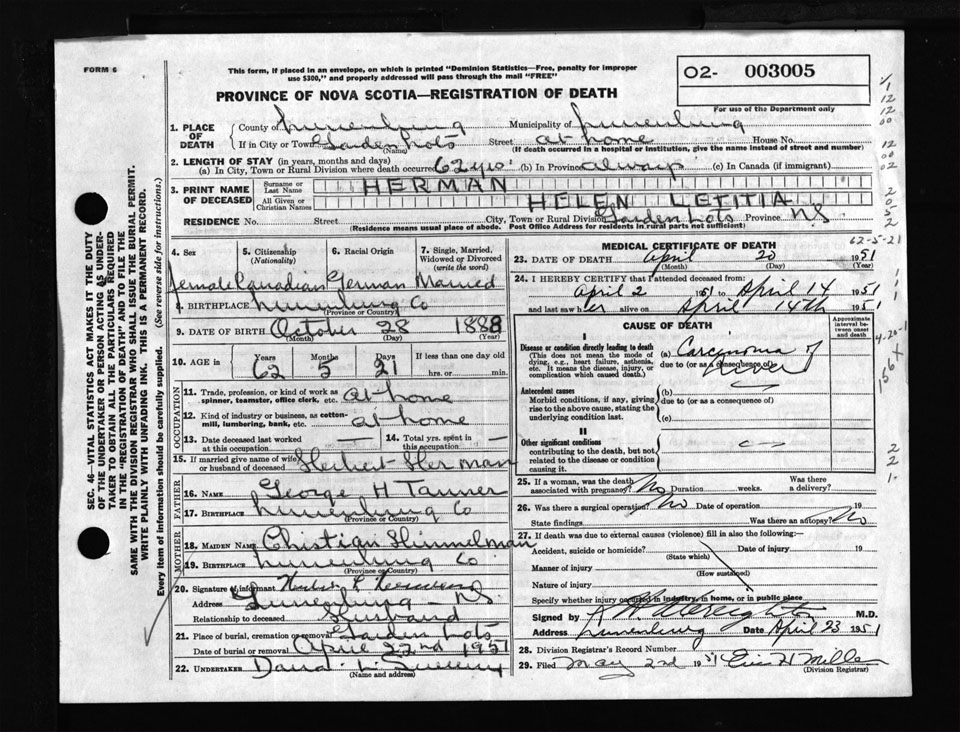 FORM 6
This form, if placed in an envelope, on which is printed "Dominion Statistics—Free, penalty for improper
use $300," and properly addressed will pass through the mail "FREE"
02- 003005
For use of the Department only
PROVINCE OF NOVA SCOTIA—REGISTRATION OF DEATH
SEC. 46—VITAL STATISTICS ACT MAKES IT THE DUTY
OF THE UNDERTAKER OR PERSON ACTING AS UNDER-
TAKER TO OBTAIN ALL THE PARTICULARS REQUIRED
IN THE "REGISTRATION OF DEATH" AND TO FILE THE
SAME WITH THE DIVISION REGISTRAR WHO SHALL ISSUE THE BURIAL PERMIT.
WRITE PLAINLY WITH UNFADING INK. THIS IS A PERMANENT RECORD.
Every item of information should be carefully supplied. (See reverse side for instructions.)
1. PLACE OF DEATH County of Lunenburg Municipality of Lunenburg
If in City or Town Garden Lots (Name) Street at home House No.
(If death occurred in a hospital or institution, give the name instead of street and number)
2. LENGTH OF STAY (in years, months and days)
(a) In City, Town or Rural Division where death occurred 62 yrs. (b) In Province always (c) In Canada (if immigrant)
3. PRINT NAME OF DECEASED Surname or Last Name HERMAN
All Given or Christian Names HELEN LETITIA
RESIDENCE No. Street City, Town or Rural Division Garden Lots Province N.S.
(Residence means usual place of abode. Post Office Address for residents in rural parts not sufficient)
4. Sex 5. Citizenship (Nationality) 6. Racial Origin 7. Single, Married, Widowed or Divorced (write the word)
Female Canadian German Married
8. BIRTHPLACE Lunenburg Co
(Province or Country)
9. DATE OF BIRTH October 28 1888
(Month) (Day) (Year)
10. AGE in Years Months Days If less than one day old
62 5 21 hrs. or min.
OCCUPATION
11. Trade, profession, or kind of work as spinner, teamster, office clerk, etc. at home
12. Kind of industry or business, as cotton-mill, lumbering, bank, etc. at home
13. Date deceased last worked at this occupation — 14. Total yrs. spent in this occupation —
15. If married give name of wife or husband of deceased Herbert Herman
FATHER
16. NAME George H Tanner
17. BIRTHPLACE Lunenburg Co
(Province or Country)
MOTHER
18. MAIDEN NAME Christian Himmelman
19. BIRTHPLACE Lunenburg Co
(Province or Country)
20. Signature of informant
Address Lunenburg - N.S.
Relationship to deceased Husband
21. Place of burial, cremation or removal Garden Lots
Date of burial or removal April 22nd 1951
22. UNDERTAKER David
(Name and address)
MEDICAL CERTIFICATE OF DEATH
62-5-21
23. DATE OF DEATH April 20 1951
(Month) (Day) (Year)
24. I HEREBY CERTIFY that I attended deceased from:
April 2 1951 to April 14 1951
and last saw her alive on April 14th 1951
CAUSE OF DEATH
Approximate interval between onset and death
I
Disease or condition directly leading to death
(This does not mean the mode of dying, e.g., heart failure, asthenia, etc. It means the disease, injury, or complication which caused death.)
(a) Carcinoma of liver
due to (or as a consequence of)
Antecedent causes
Morbid conditions, if any, giving rise to the above cause, stating the underlying condition last.
(b)
due to (or as a consequence of)
(c)
II
Other significant conditions
contributing to the death, but not related to the disease or condition causing it.
25. If a woman, was the death associated with pregnancy? No Duration weeks. Was there a delivery?
26. Was there a surgical operation? No Date of operation 19
State findings Was there an autopsy? No
27. If death was due to external causes (violence) fill in also the following:—
Accident, suicide or homicide? (State which) Date of injury 19
Manner of injury
(How sustained)
Nature of injury
Specify whether injury occurred in industry, in home, or in public place
Signed by M.D.
Address Lunenburg Date April 23 1951
28. Division Registrar's Record Number
29. Filed May 2nd 1951
(Division Registrar)